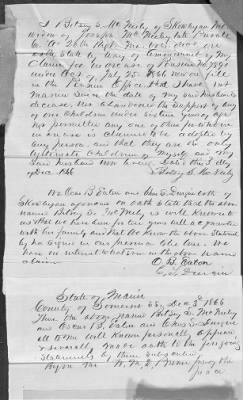 I Betsey E. McNeily of Skowhegan Me
widow of Joseph McNeily late Private
Co. A 28th Regt. Me. Vols. do on
oath state by way of amendment of my
claim for increase of Pension No.
under Act of July 25, 1866 now on file
in the Pension Office, that I have not
married since the date of my said husbands
decease. Nor abandoned the support of any
of our children under sixteen years of age
nor permitted any one of them for whom
increase is claimed to be adopted by
any person, and that they are the only
legitimate children of myself and my
said husband now living. Dated this 3d day
of Dec 1866
Betsey E. McNeily
We Oscar B. Eaton and Chas E. both of
Skowhegan aforesaid on oath state that the above
named Betsey E. McNeily is well known to
us that we have been for years well acquainted
with her family and that we know the above statement
by her signed in our presence to be true. We
have no interest whatever in the above
claim
O. B. Eaton
State of Maine
County of Somerset ss. Dec 3d 1866
Then the above named Betsey E. McNeily
and Oscar B. Eaton and Chas E.
all to me well known personally appeared
& severally made oath to the foregoing
statements by them subscribed
Before me
Justice of the
Peace